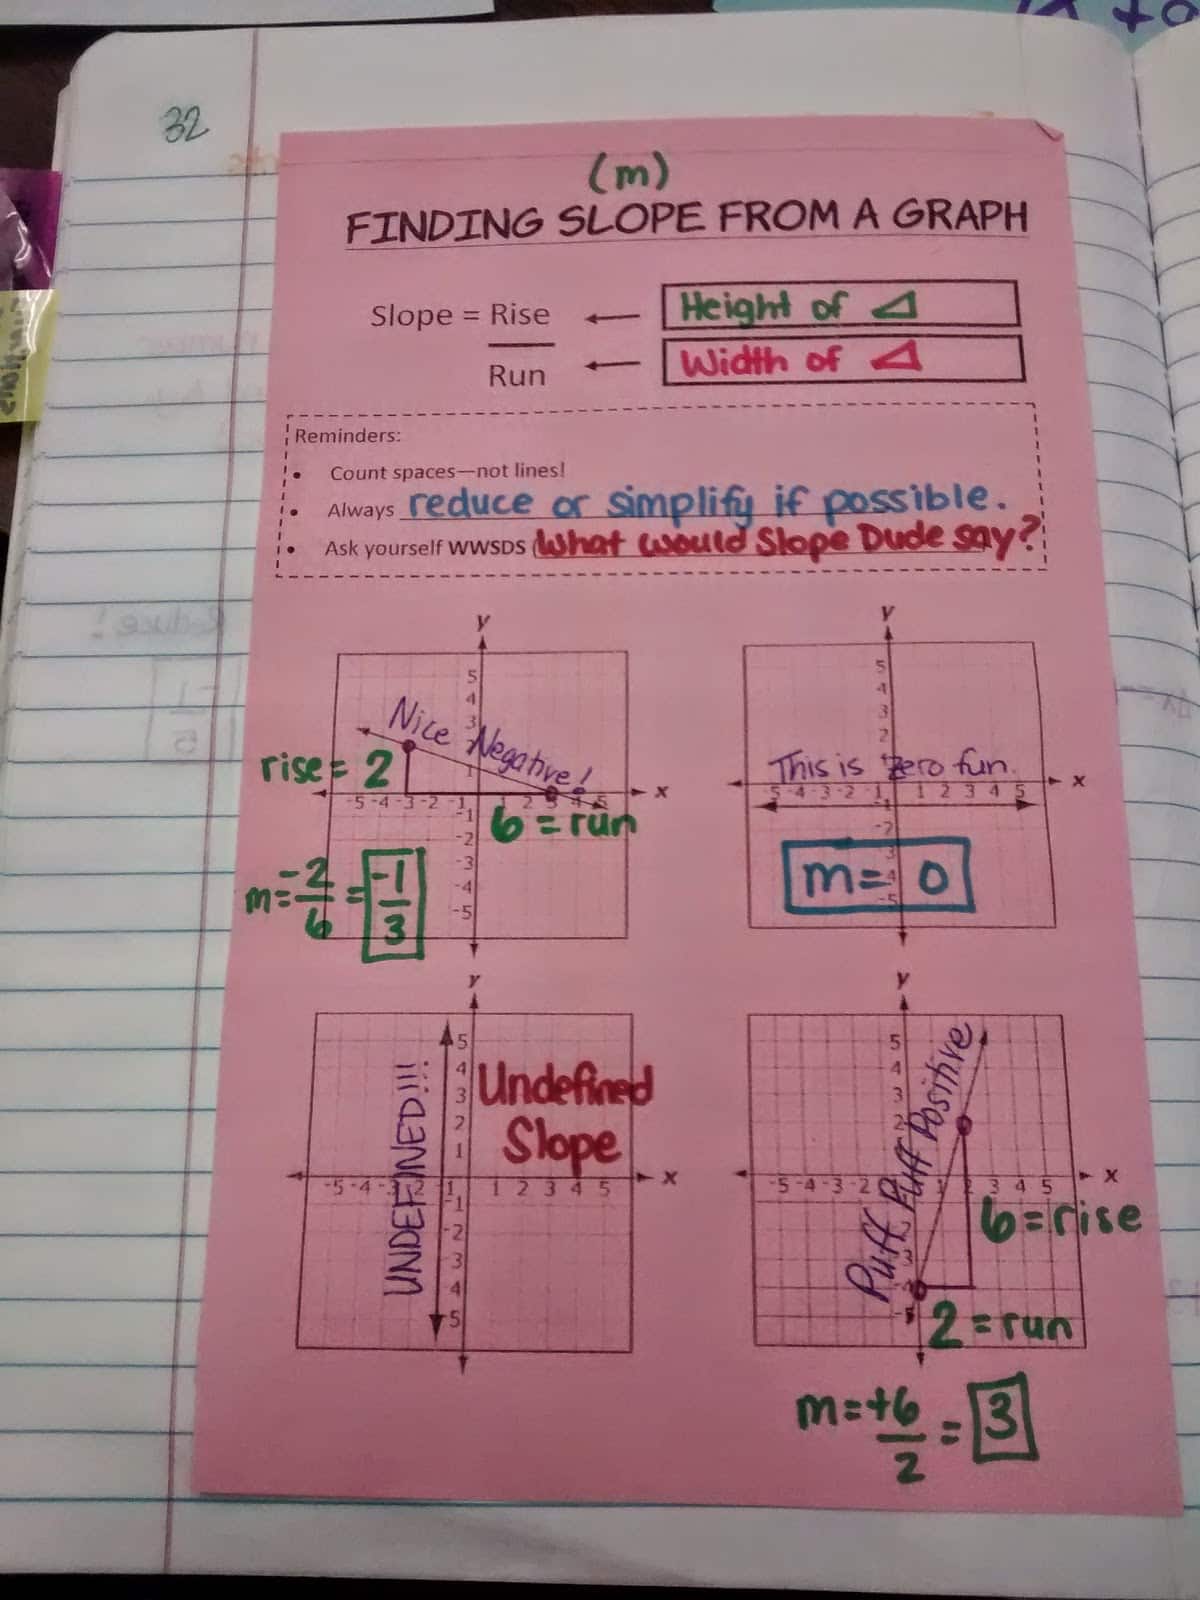 32
(m)
FINDING SLOPE FROM A GRAPH
Slope = Rise
Height of
Run
Width of
Reminders:
• Count spaces—not lines!
• Always reduce or simplify if possible.
• Ask yourself WWSDS (What would Slope Dude say?
y
5
4
3
Nice Negative!
rise = 2
1
x
-5 -4 -3 -2 -1 1 2 3 4 5
6 = run
-1
-2
-3
-4
-5
m = -2/6 = -1/3
y
5
4
3
2
This is zero fun.
x
-5 -4 -3 -2 -1 1 2 3 4 5
-1
-2
-3
-4
-5
m = 0
y
5
4
3
2
1
UNDEFINED!!!
Undefined
Slope
x
-5 -4 -3 -2 -1 1 2 3 4 5
-1
-2
-3
-4
-5
y
5
4
3
2
Puff Puff Positive
x
-5 -4 -3 -2 1 2 3 4 5
6 = rise
-3
-4
-5
2 = run
m = +6/2 = 3